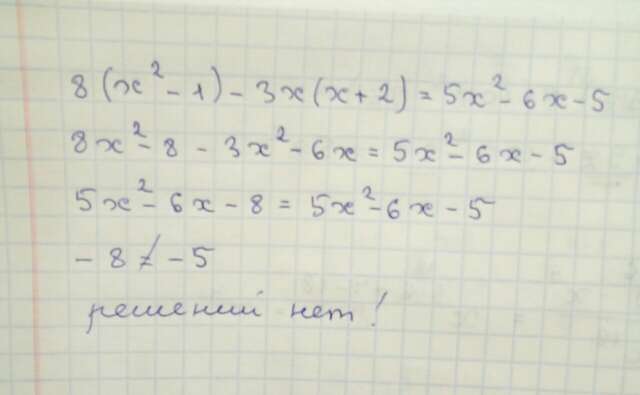 8(x²-1)-3x(x+2)=5x²-6x-5
8x²-8-3x²-6x=5x²-6x-5
5x²-6x-8=5x²-6x-5
-8≠-5
решений нет!